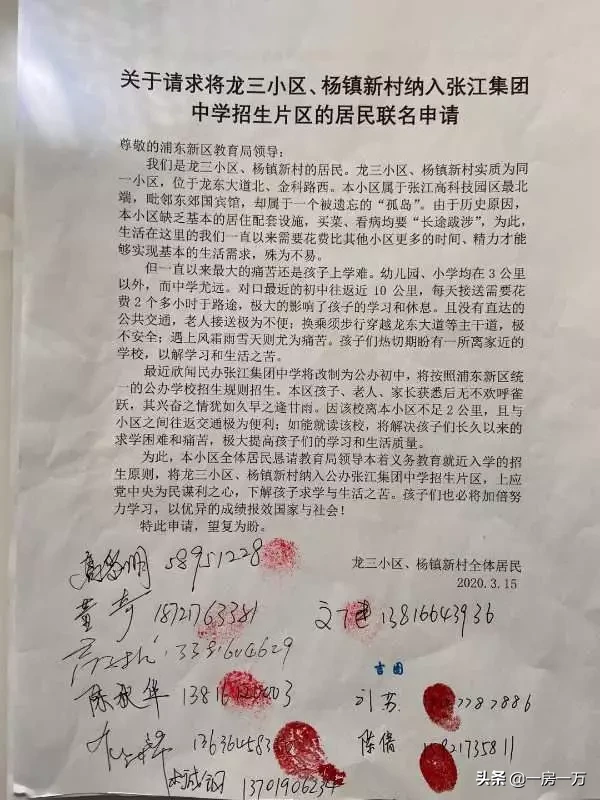 关于请求将龙三小区、杨镇新村纳入张江集团
中学招生片区的居民联名申请
尊敬的浦东新区教育局领导:
我们是龙三小区、杨镇新村的居民。龙三小区、杨镇新村实质为同
一小区，位于龙东大道北、金科路西。本小区属于张江高科技园区最北
端，毗邻东郊国宾馆，却属于一个被遗忘的“孤岛”。由于历史原因，
本小区缺乏基本的居住配套设施，买菜、看病均要“长途跋涉”，为此，
生活在这里的我们一直以来需要花费比其他小区更多的时间、精力才能
够实现基本的生活需求，殊为不易。
但一直以来最大的痛苦还是孩子上学难。幼儿园、小学均在 3 公里
以外，而中学尤远。对口最近的初中往返近 10 公里，每天接送需要花
费 2 个多小时于路途，极大的影响了孩子的学习和休息。且没有直达的
公共交通，老人接送极为不便；换乘须步行穿越龙东大道等主干道，极
不安全；遇上风霜雨雪天则尤为痛苦。孩子们热切期盼有一所离家近的
学校，以解学习和生活之苦。
最近欣闻民办张江集团中学将改制为公办初中，将按照浦东新区统
一的公办学校招生规则招生。本区孩子、老人、家长获悉后无不欢呼雀
跃，其兴奋之情犹如久旱之逢甘雨。因该校离本小区不足 2 公里，且与
小区之间往返交通极为便利；如能就读该校，将解决孩子们长久以来的
求学困难和痛苦，极大提高孩子们的学习和生活质量。
为此，本小区全体居民恳请教育局领导本着义务教育就近入学的招
生原则，将龙三小区、杨镇新村纳入公办张江集团中学招生片区，上应
党中央为民谋利之心，下解孩子求学与生活之苦。孩子们也必将加倍努
力学习，以优异的成绩报效国家与社会！
特此申请，望复为盼。
龙三小区、杨镇新村全体居民
2020.3.15
58951228
黄奇 18721763381
13816643936
陈秋华
吉园
陈倩
13701906234
头条 @一房一万